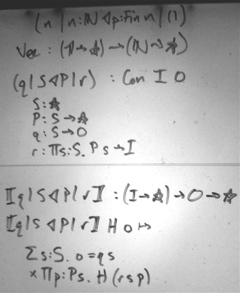 (n | n:ℕ ◁ p:Fin n | ())
Vec : (1→☆)→(ℕ→☆)
(q | S ◁ P | r) : Con I O
S:☆
P: S→☆
q: S→O
r: Πs:S. P s→I
⟦q | S ◁ P | r⟧ : (I→☆)→O→☆
⟦q | S ◁ P | r⟧ H o ↦
Σs:S. o = q s
× Πp:P s. H (r s p)